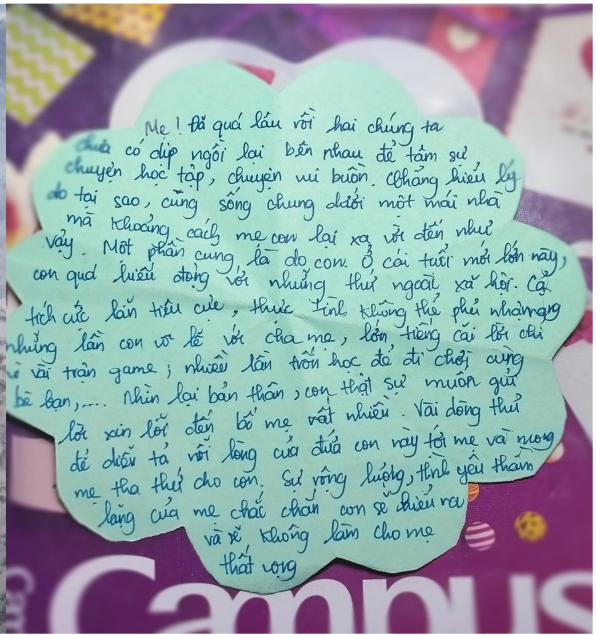 Mẹ! Đã quá lâu rồi hai chúng ta
chưa có dịp ngồi lại bên nhau để tâm sự
chuyện học tập, chuyện vui buồn. Chẳng hiểu lý
do tại sao, cùng sống chung dưới một mái nhà
mà khoảng cách mẹ con lại xa vời đến như
vậy. Một phần cũng là do con. Ở cái tuổi mới lớn này,
con quá hiếu động với những thứ ngoài xã hội. Cả
tích cực lẫn tiêu cực, thực tình không thể phủ nhận
những lần con vô lễ với cha mẹ, lớn tiếng cãi lời chỉ
vì vài trận game; nhiều lần trốn học để đi chơi cùng
bè bạn,.... Nhìn lại bản thân, con thật sự muốn gửi
lời xin lỗi đến bố mẹ rất nhiều. Vài dòng thư
để diễn tả nỗi lòng của đứa con này tới mẹ và mong
mẹ tha thứ cho con. Sự rộng lượng, tình yêu thầm
lặng của mẹ chắc chắn con sẽ hiểu ra
và sẽ không làm cho mẹ
thất vọng
Campus